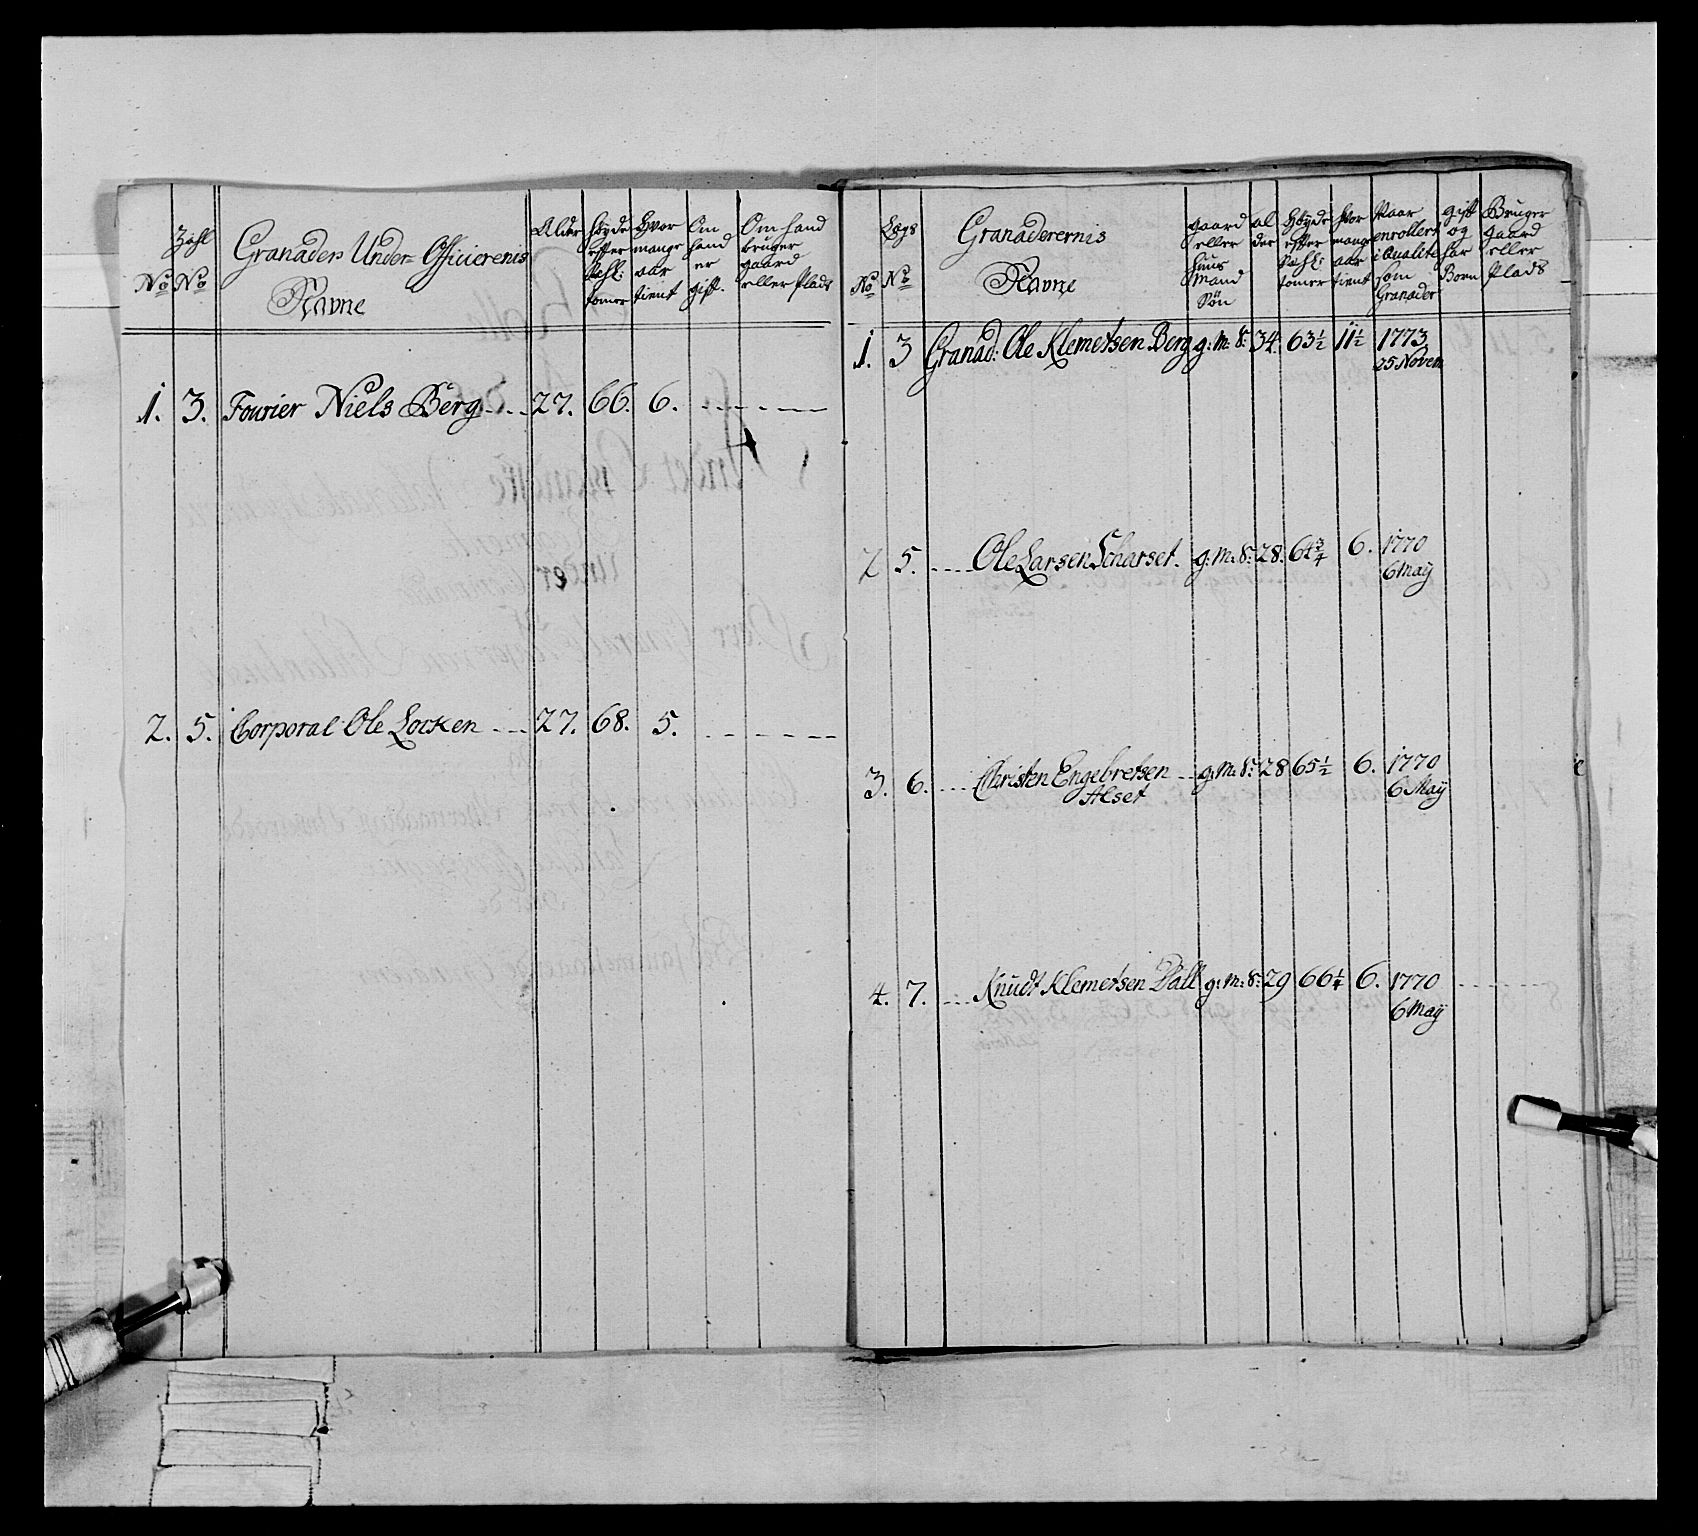 No
Zahl No
Granader Under Officierenis Navne
Alder
Høyde efter Pahl: tomer
Hvor mange aar tient
Om hand er gift.
Om hand bruger gaard eller Plads
1. 3. Fourier Niels Berg 27. 66. 6.
2. 5. Corporal Ole Locken 27. 68. 5.
No
Lægs No
Granaderernis Navne
gaard eller huus Mand Søn
al der
Høyde efter Pahl: tomer
hvor mange aar tient
Naar enrollert i Qualite som Granader
gift og har Born
Bruger gaard eller Plads
1. 3 Granad: Ole Klemetsen Berg g: m: S: 34. 63½ 11½ 1773
25 Novem
2 5. Ole Larsen Scharset. g: m: S: 28. 64¾ 6. 1770
6 Maÿ
3. 6. Christen Engebretsen g: m: S: 28 65½ 6. 1770
Alset 6 Maÿ
4. 7. Knudt Klemetsen Dall g: m: S: 29 66¼ 6. 1770
6 Maÿ